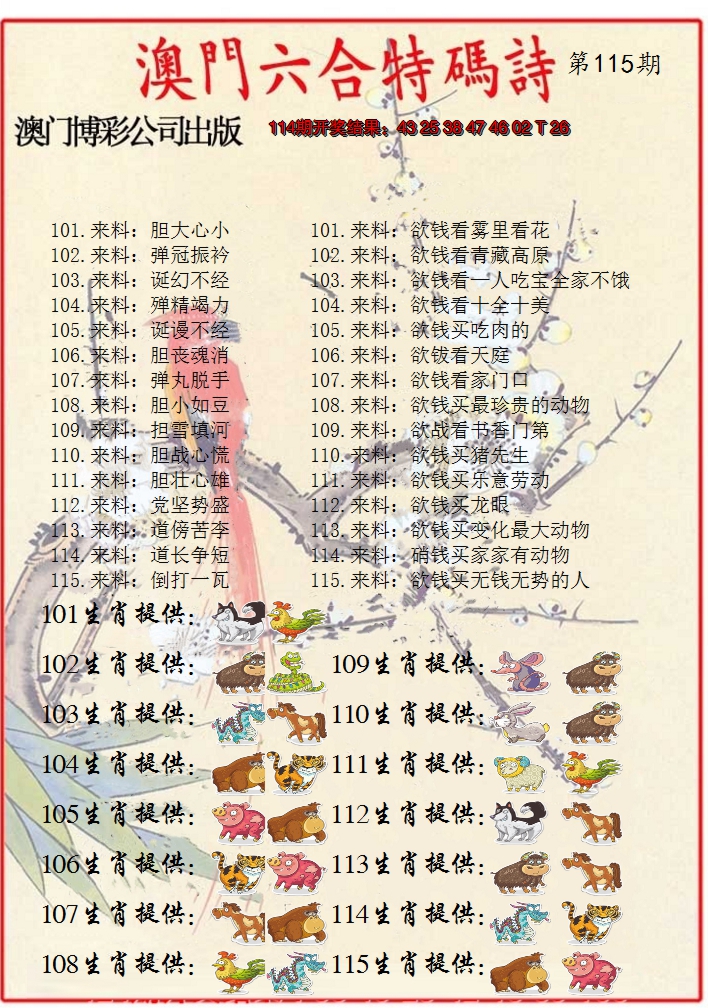 澳門六合特碼詩 第115期
澳门博彩公司出版 114期开奖结果：43 25 38 47 46 02 T 26
101.来料：胆大心小 101.来料：欲钱看雾里看花
102.来料：弹冠振衿 102.来料：欲钱看青藏高原
103.来料：诞幻不经 103.来料：欲钱看一人吃宝全家不饿
104.来料：殚精竭力 104.来料：欲钱看十全十美
105.来料：诞谩不经 105.来料：欲钱买吃肉的
106.来料：胆丧魂消 106.来料：欲钹看天庭
107.来料：弹丸脱手 107.来料：欲钱看家门口
108.来料：胆小如豆 108.来料：欲钱买最珍贵的动物
109.来料：担雪填河 109.来料：欲战看书香门第
110.来料：胆战心慌 110.来料：欲钱买猪先生
111.来料：胆壮心雄 111.来料：欲钱买乐意劳动
112.来料：党坚势盛 112.来料：欲钱买龙眼
113.来料：道傍苦李 113.来料：欲钱买变化最大动物
114.来料：道长争短 114.来料：硝钱买家家有动物
115.来料：倒打一瓦 115.来料：欲钱买无钱无势的人
101生肖提供：
102生肖提供： 109生肖提供：
103生肖提供： 110生肖提供：
104生肖提供： 111生肖提供：
105生肖提供： 112生肖提供：
106生肖提供： 113生肖提供：
107生肖提供： 114生肖提供：
108生肖提供： 115生肖提供：